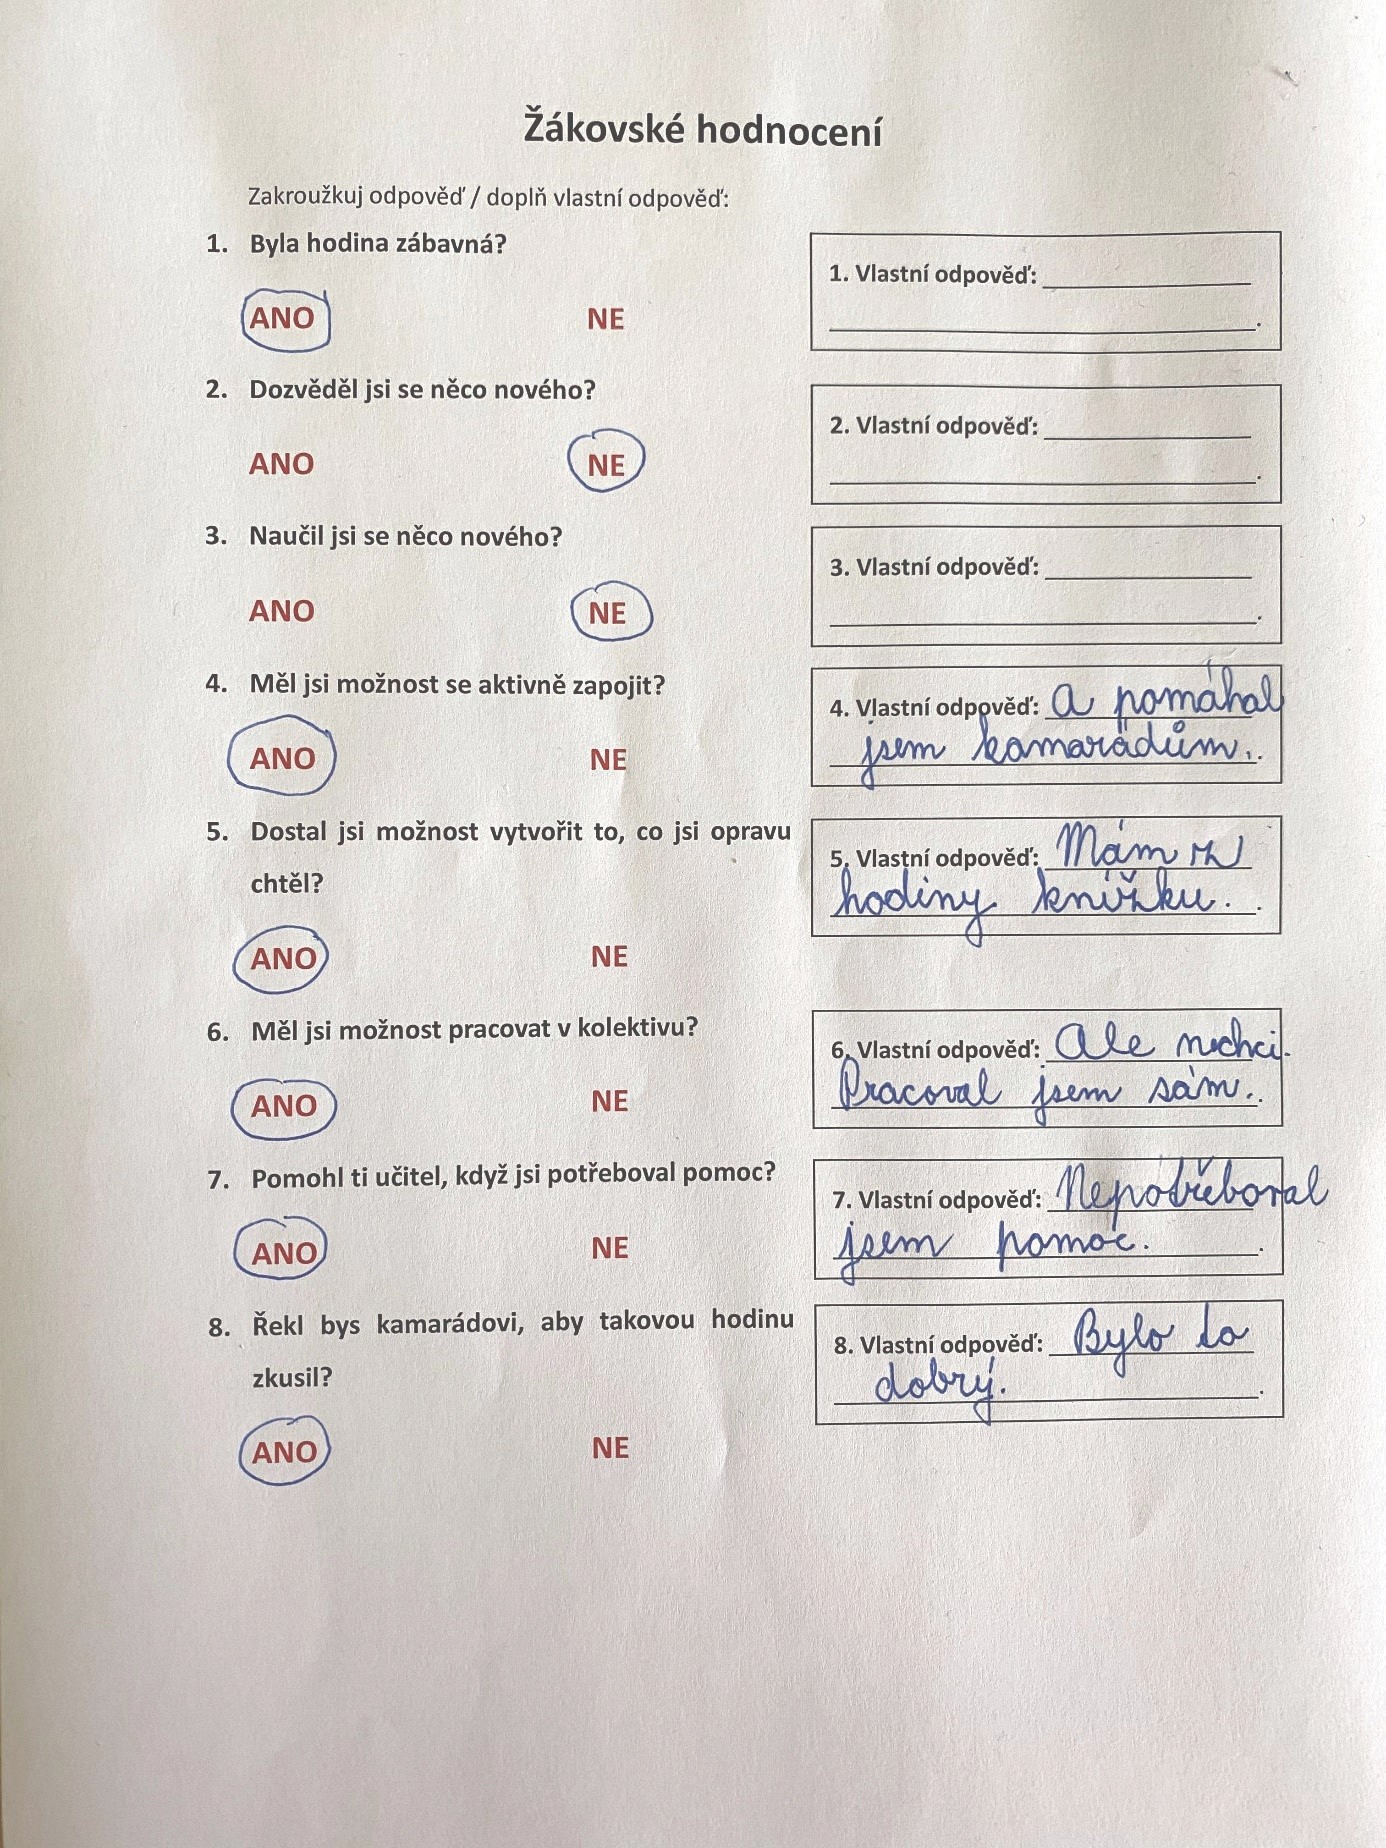 Žákovské hodnocení
Zakroužkuj odpověď / doplň vlastní odpověď:
1. Byla hodina zábavná?
ANO NE
1. Vlastní odpověď:
.
2. Dozvěděl jsi se něco nového?
ANO NE
2. Vlastní odpověď:
.
3. Naučil jsi se něco nového?
ANO NE
3. Vlastní odpověď:
.
4. Měl jsi možnost se aktivně zapojit?
ANO NE
4. Vlastní odpověď: a pomáhal
jsem kamarádům. .
5. Dostal jsi možnost vytvořit to, co jsi opravu
chtěl?
ANO NE
5. Vlastní odpověď: Mám z
hodiny knížku. .
6. Měl jsi možnost pracovat v kolektivu?
ANO NE
6. Vlastní odpověď: Ale nechci.
Pracoval jsem sám. .
7. Pomohl ti učitel, když jsi potřeboval pomoc?
ANO NE
7. Vlastní odpověď: Nepotřeboval
jsem pomoc. .
8. Řekl bys kamarádovi, aby takovou hodinu
zkusil?
ANO NE
8. Vlastní odpověď: Bylo to
dobrý. .